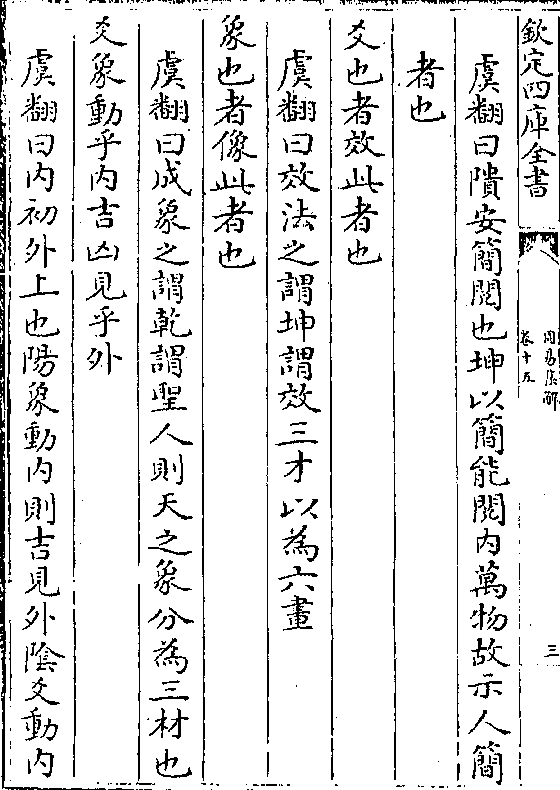 欽定四庫全書
周易集解
卷十五
三
虞翻曰隤安簡閲也坤以簡能閲内萬物故示人簡
者也
爻也者效此者也
虞翻曰效法之謂坤謂效三才以為六畫
象也者像此者也
虞翻曰成象之謂乾謂聖人則天之象分為三材也
爻象動乎内吉凶見乎外
虞翻曰内初外上也陽象動内則吉見外陰爻動内